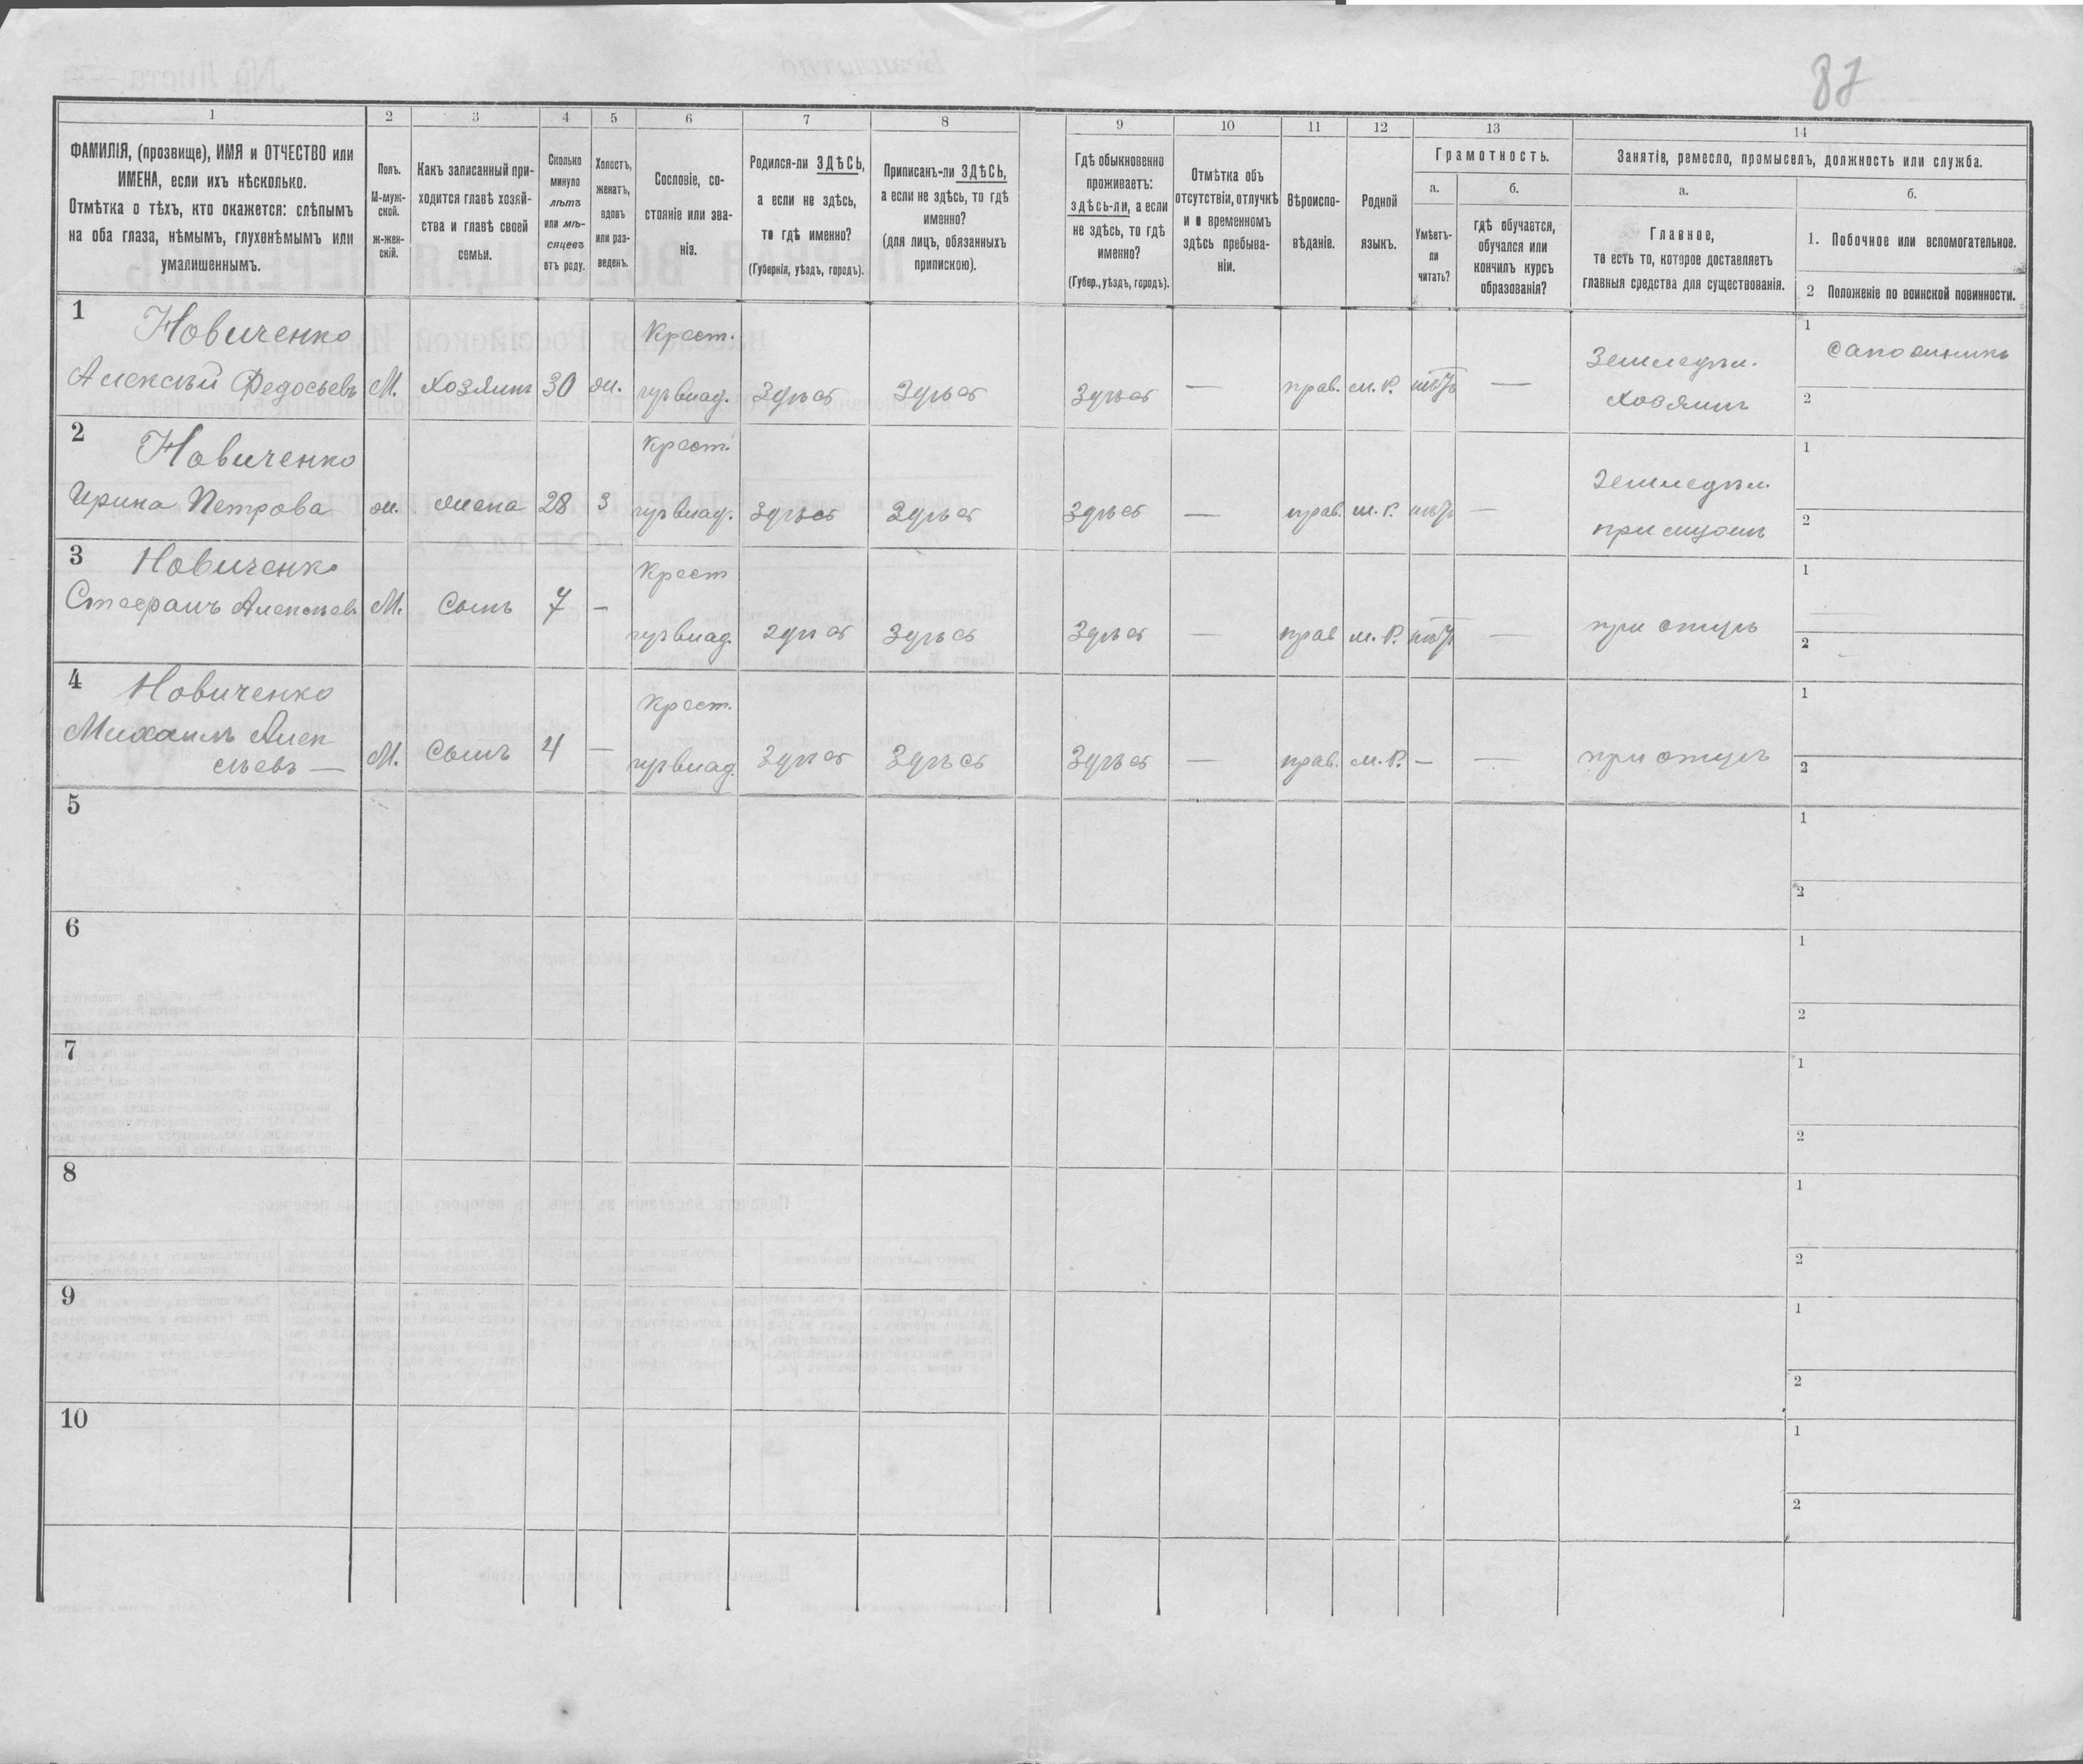 87
1
2
3
4
5
6
7
8
9
10
11
12
13
14
ФАМИЛІЯ, (прозвище), ИМЯ и ОТЧЕСТВО или
ИМЕНА, если ихъ нѣсколько.
Отмѣтка о тѣхъ, кто окажется: слѣпымъ
на оба глаза, нѣмымъ, глухонѣмымъ или
умалишеннымъ.
Полъ.
М-муж-
ской.
ж-жен-
скій.
Какъ записанный при-
ходится главѣ хозяй-
ства и главѣ своей
семьи.
Сколько
минуло
лѣтъ
или мѣ-
сяцевъ
отъ роду.
Холостъ,
женатъ,
вдовъ
или раз-
веденъ.
Сословіе, со-
стояніе или зва-
ніе.
Родился-ли ЗДѢСЬ,
а если не здѣсь,
то гдѣ именно?
(Губернія, уѣздъ, городъ).
Приписанъ-ли ЗДѢСЬ,
а если не здѣсь, то гдѣ
именно?
(для лицъ, обязанныхъ
припискою).
Гдѣ обыкновенно
проживаетъ:
здѣсь-ли, а если
не здѣсь, то гдѣ
именно?
(Губер., уѣздъ, городъ).
Отмѣтка объ
отсутствіи, отлучкѣ
и о временномъ
здѣсь пребыва-
ніи.
Вѣроиспо-
вѣданіе.
Родной
языкъ.
Грамотность.
а.
Умѣетъ-
ли
читать?
б.
гдѣ обучается,
обучался или
кончилъ курсъ
образованія?
Занятіе, ремесло, промыселъ, должность или служба.
а.
Главное,
то есть то, которое доставляетъ
главныя средства для существованія.
б.
1. Побочное или вспомогательное.
2 Положеніе по воинской повинности.
1
Новиченко
Алексѣй Федосьевъ
М.
Хозяинъ
30
ж.
Крест.
гувлад.
Здѣсь
Здѣсь
Здѣсь
—
прав.
м. р.
нѣтъ
—
Земледѣл.
Хозяинъ
1
Сапожникъ
2
2
Новиченко
Ирина Петрова
ж.
жена
28
З
Крест.
гувлад.
Здѣсь
Здѣсь
Здѣсь
—
прав.
м. р.
нѣтъ
—
Земледѣл.
при мужѣ
1
2
3
Новиченко
Стефанъ Алексѣевъ
М.
Сынъ
7
-
Крест
гувлад.
Здѣсь
Здѣсь
Здѣсь
—
прав
м. р.
нѣтъ
—
при отцѣ
1
2
4
Новиченко
Михаилъ Алек
сѣевъ —
М.
Сынъ
4
—
Крест.
гувлад.
Здѣсь
Здѣсь
Здѣсь
—
прав.
м. р.
—
—
при отцѣ
1
2
5
1
2
6
1
2
7
1
2
8
1
2
9
1
2
10
1
2